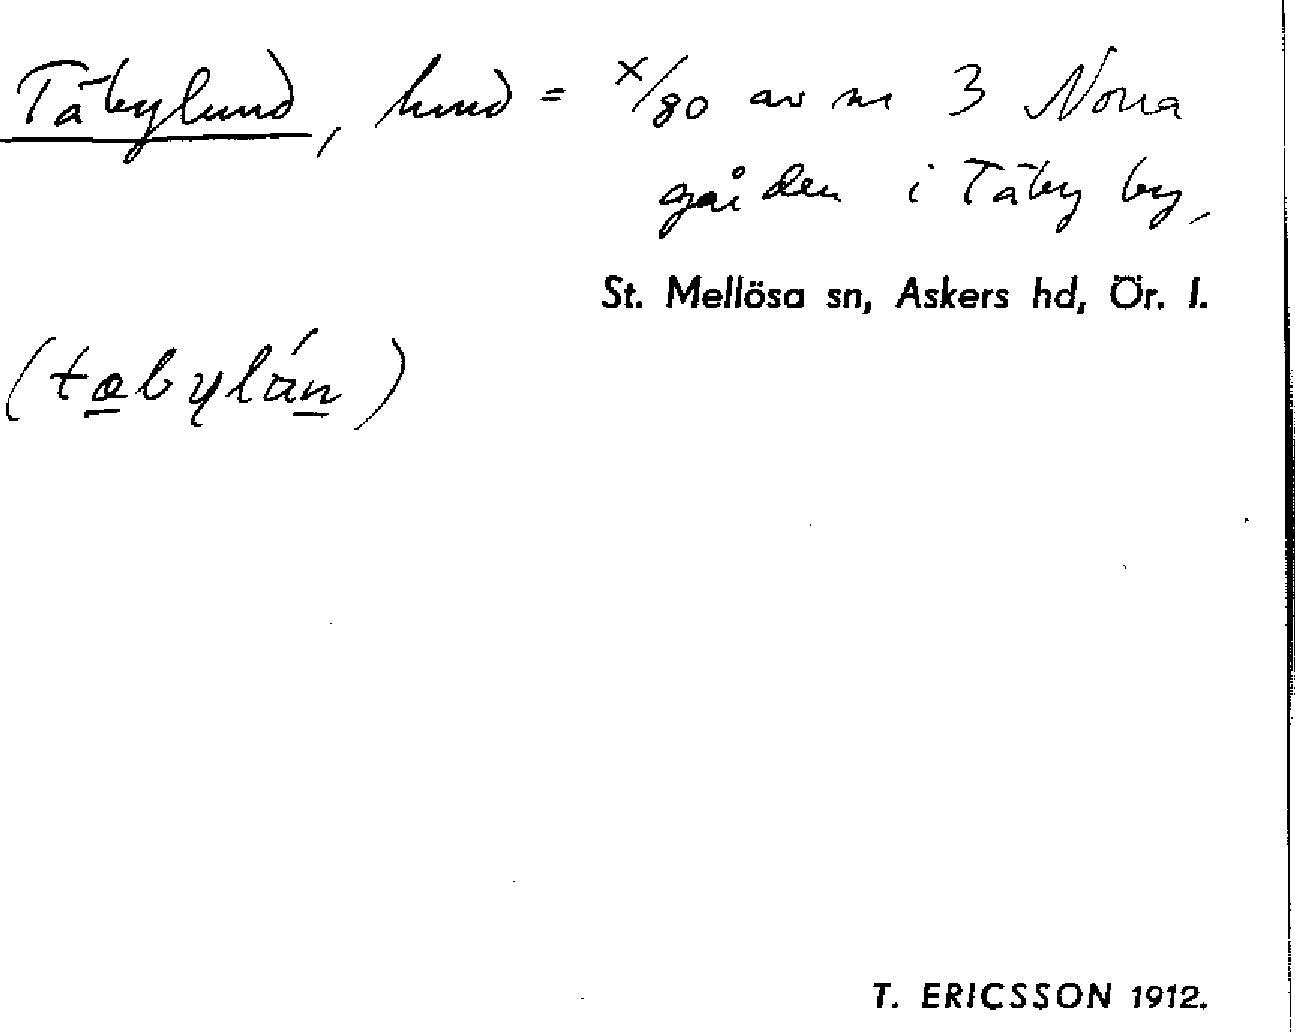 Täbylund, hmd = x/80 av nr 3 Norra
gården i Täby by,
St. Mellösa sn, Askers hd, Ör. l.
(tæbylán)
T. ERICSSON 1912.